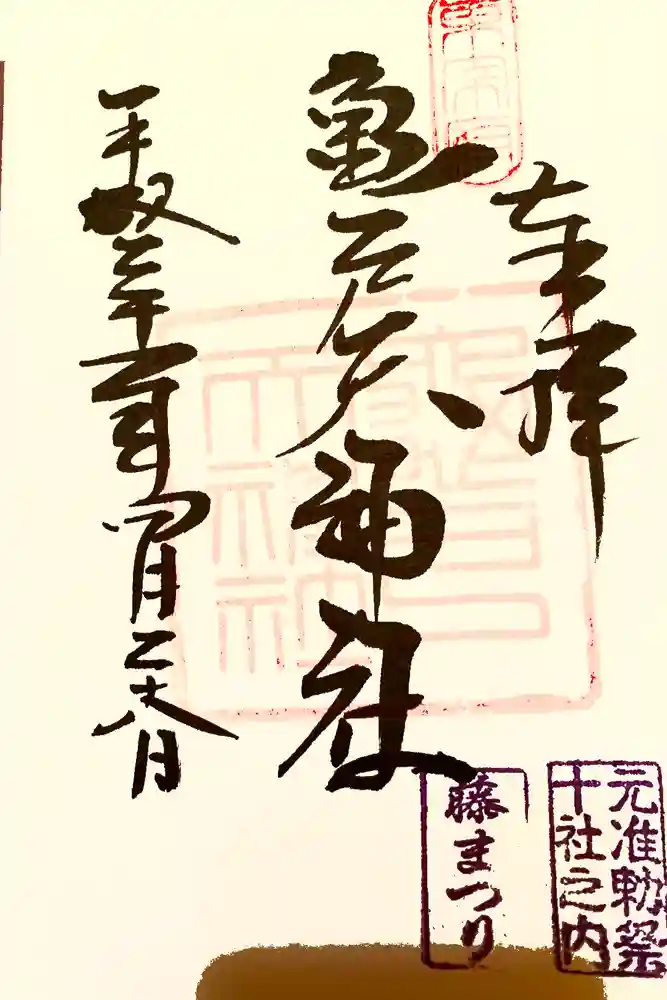 奉拝
亀戸天神社
平成三十一年四月二十八日
元准勅祭
十社之内
藤まつり